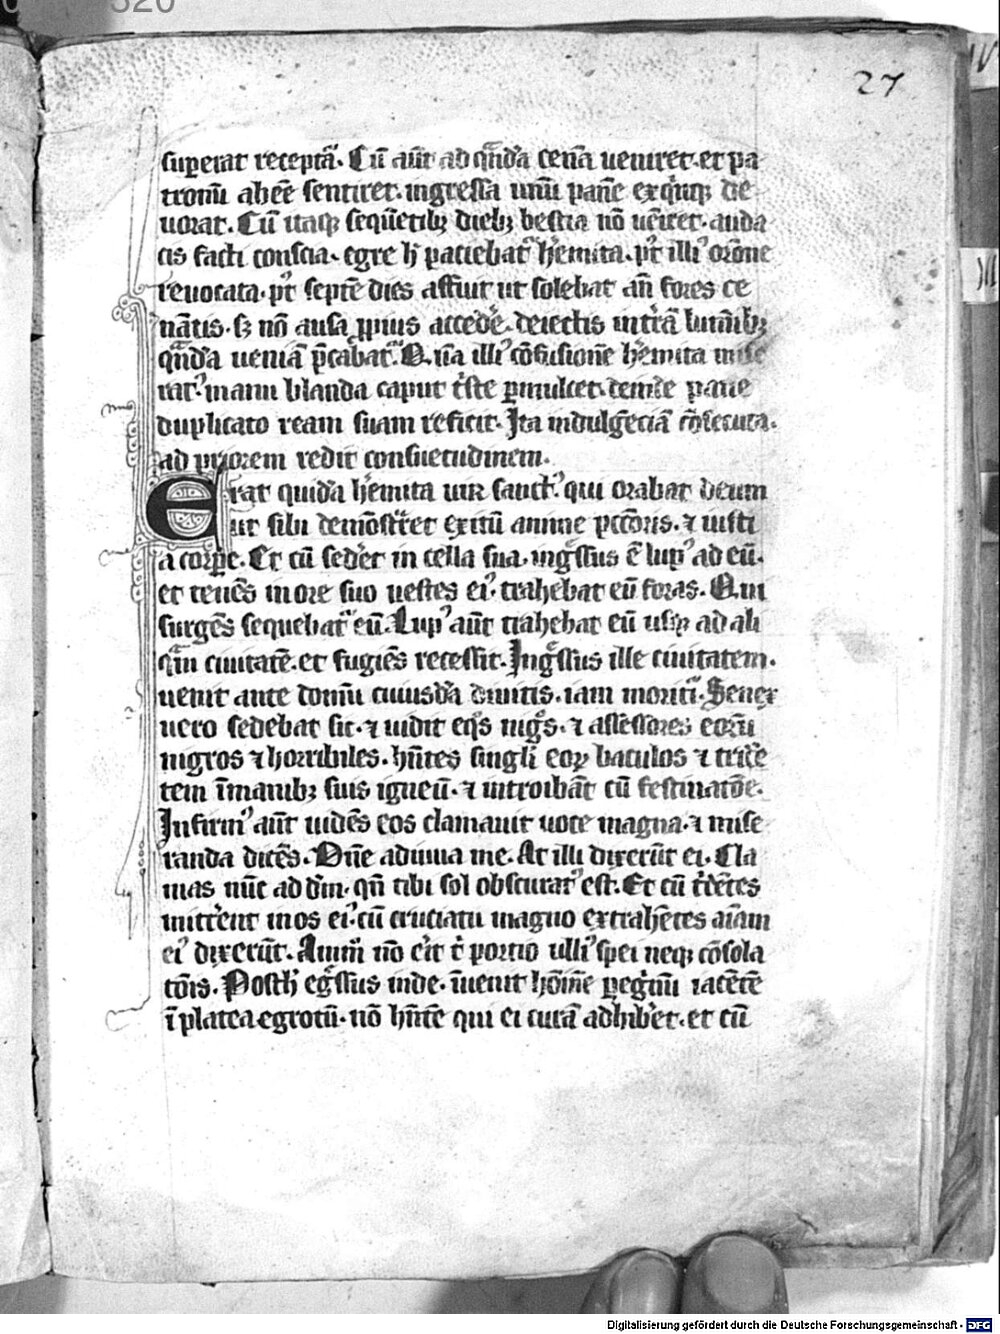 27
superat receptā. Cū aūt ad q̄ndā cenā ueniret. et pa
tronū abēe sentiret. ingressa unū panē ex q̇nqȝ de
uorat. Cū itaqȝ sequētibȝ diebȝ bestia nō uēiret. auda
cis facti conscia. egre h̄ paciebatᷣ h̓emita. pꝰt illiꝰ orōne
reuocata. pꝰt septē dies affuit ut solebat añ fores ce
nātis. sȝ nō ausa ꝓpius accede̓. deiectis int̓rā lumībȝ
q̄ndā ueniā p̄cabatᷣ. Q̇ nā illiꝰ cōfusionē h̓emita mise
ratꝰ. manu blanda caput t̓ste ꝑmulcet. deinde pane
duplicato ream suam reficit. Ita indulgēciā cōsecuta.
ad priorem redit consuetudinem.
Erat quidā h̓emita uir sanctꝰ. qui orabat deum
ut sibi demōst̓ret exitū anime pccōris. ⁊ iusti
a corpe̓. Et cū sede̓t in cella sua. ing̓ssus ē lupꝰ ad eū.
et tenēs in ore suo uestes eiꝰ. trahebat eū foras. Qui
surgēs sequebatᷣ eū. Lupꝰ aūt trahebat eū usqȝ ad ali
q̄m ciuitatē. et fugiēs recessit. Ing̓ssus ille ciuitatem.
uenit ante domū cuiusdā diuitis. iam moritᷣi. Senex
uero sedebat sic. ⁊ uidit eq̊s nig̊s. ⁊ assessores eorū
nigros ⁊ horribiles. hn̄tes singli̓ eoꝝ baculos ⁊ tridē
tem ī manibȝ suis igneū. ⁊ introibāt cū festinatōe.
Infirmꝰ aūt uidēs eos clamauit uoce magna. ⁊ mise
randa dicēs. Dn̄e adiuua me. At illi dixerūt ei. Cla
mas nūc ad dm̄. qn̄ tibi sol obscuratꝰ est. Et cū t̓dētes
mitte̓nt in os eiꝰ. cū cruciatu magno extrah̄etes aīam
eiꝰ dixerūt. Amm̄ nō e̓it t̓ portio ulliꝰ spei neqȝ cōsola
tōis. Posth̓ eg̓ssus inde. īuenit hōīnē ꝑeg̓nū iacētē
ī platea egrotū. nō hn̄tē qui ei curā adhibe̓t. et cū
Digitalisierung gefördert durch die Deutsche Forschungsgemeinschaft - DFG